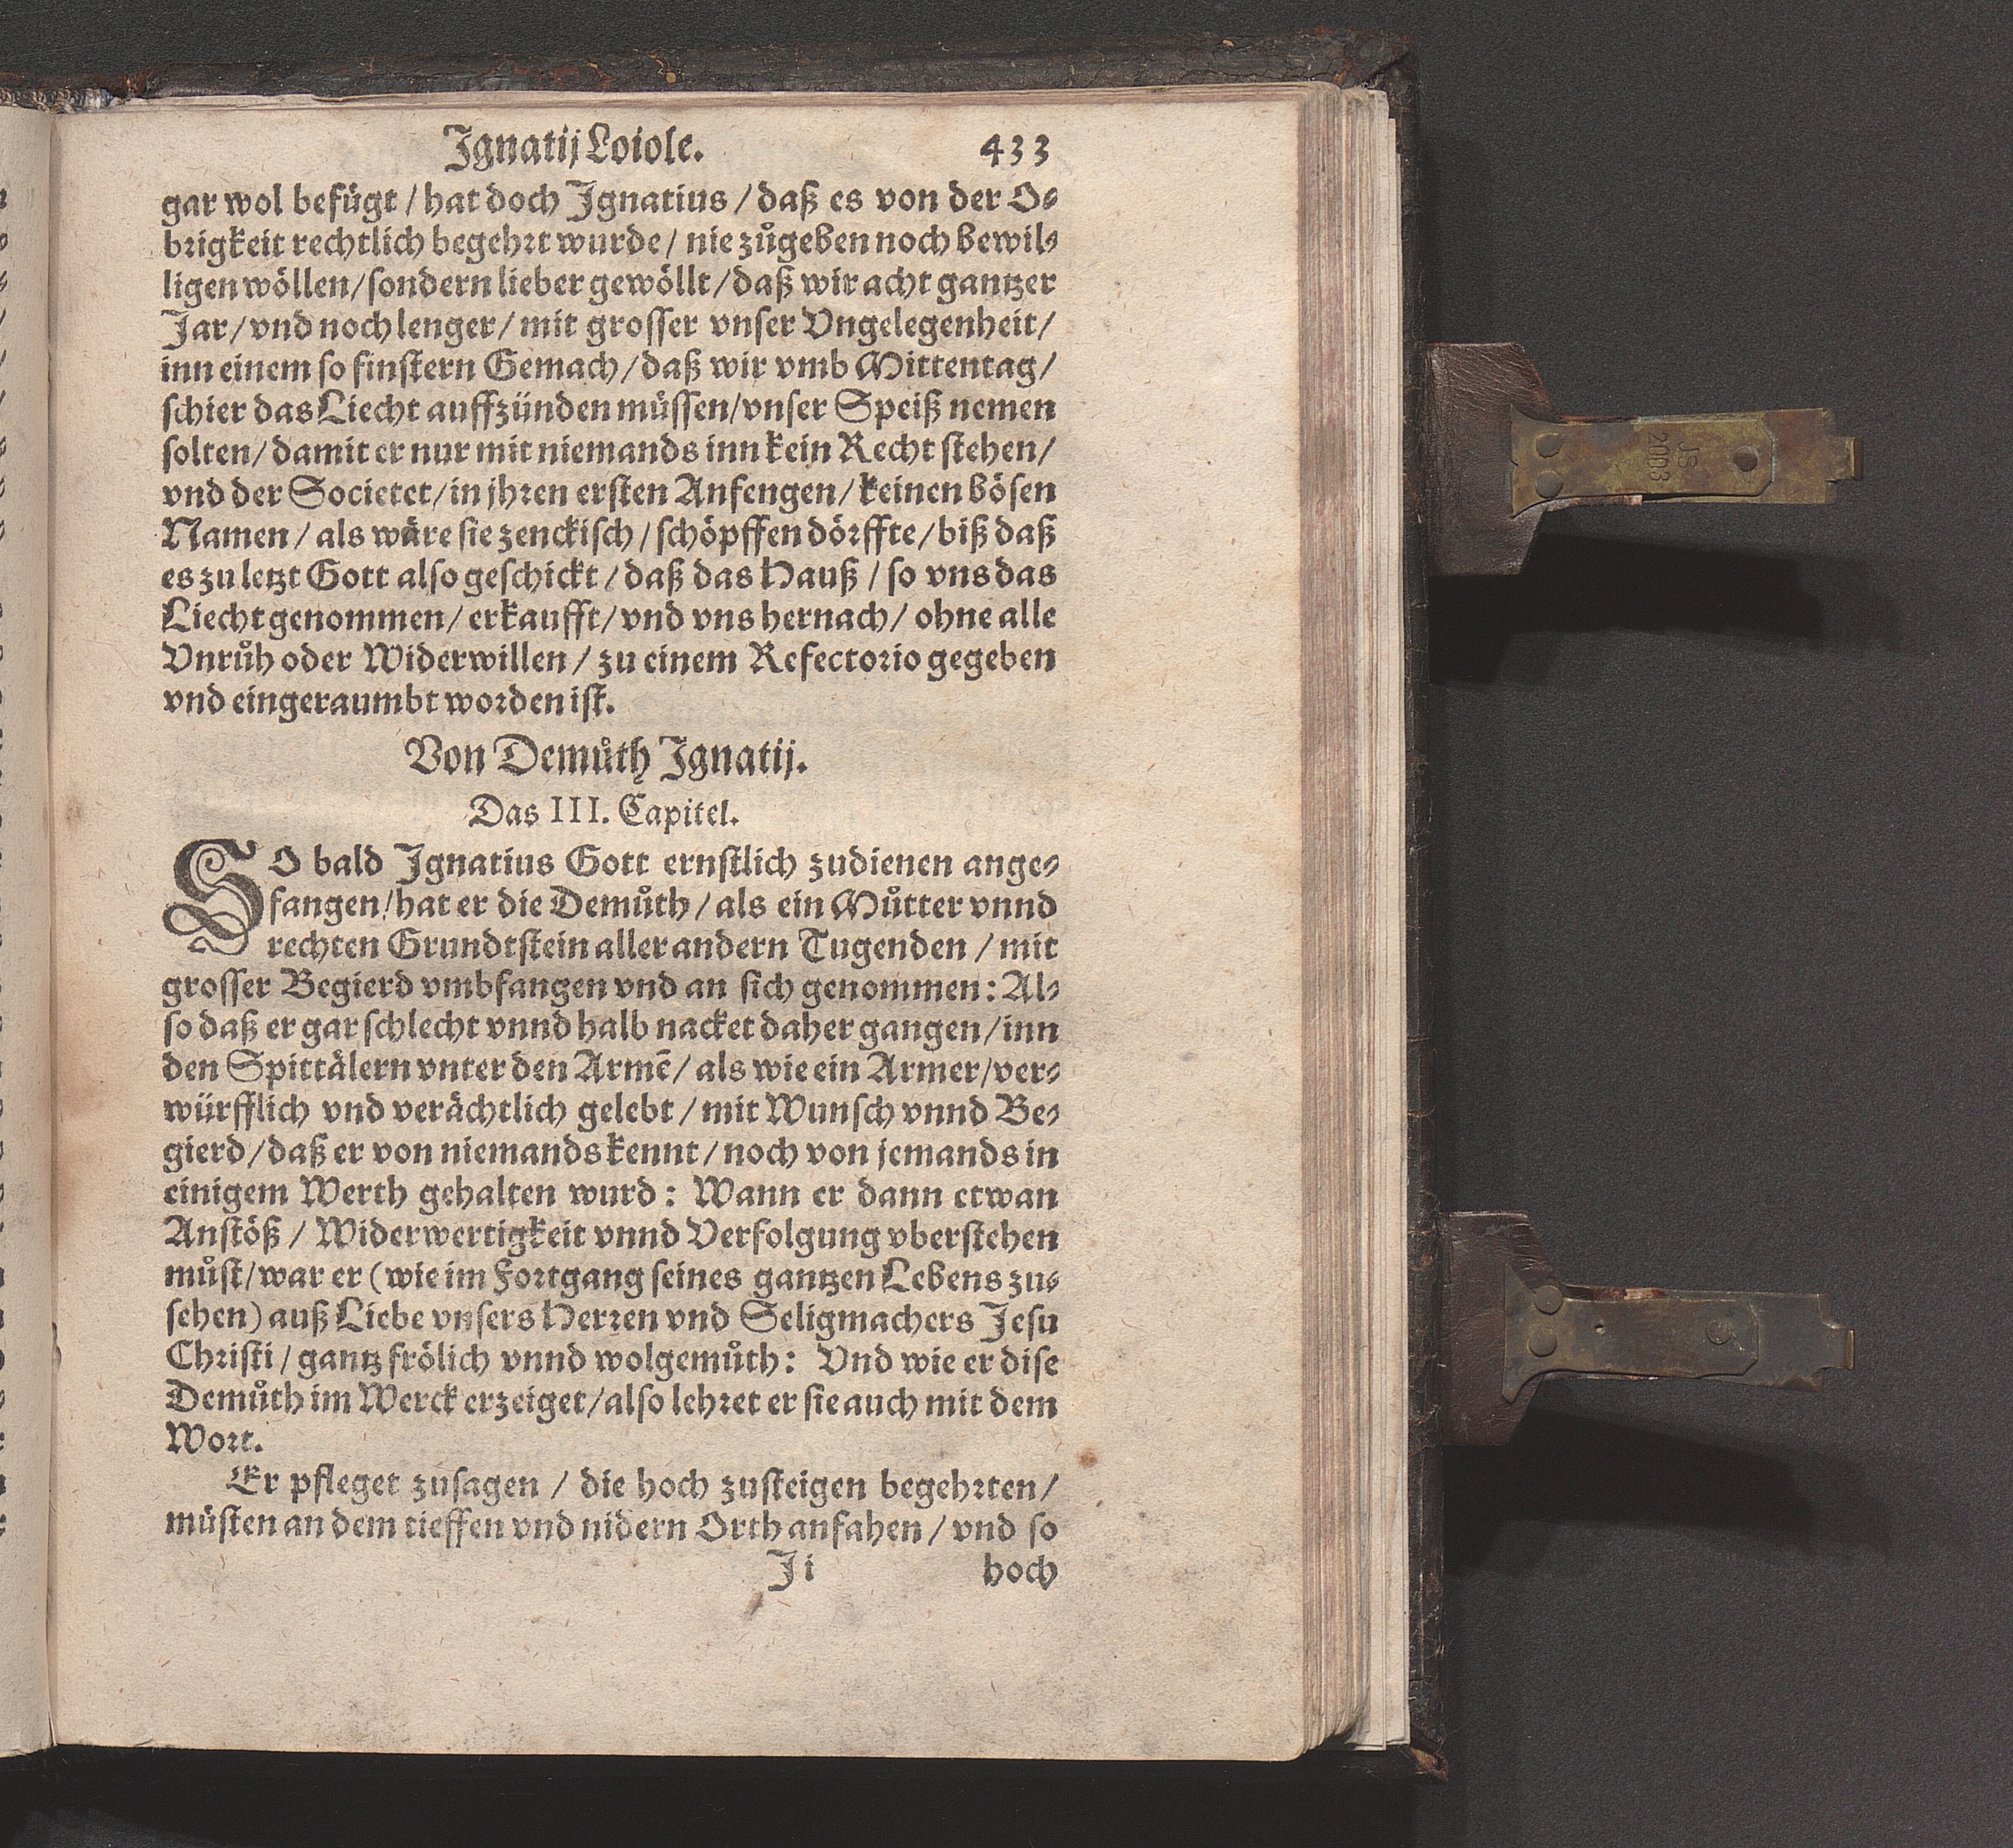 Ignatij Loiole. 433
gar wol befügt / hat doch Ignatius / daß es von der O-
brigkeit rechtlich begehrt wurde / nie zůgeben noch bewil-
ligen wöllen / sondern lieber gewöllt / daß wir acht gantzer
Jar / vnd noch lenger / mit grosser vnser Vngelegenheit /
inn einem so finstern Gemach / daß wir vmb Mittentag /
schier das Liecht auffzünden müssen / vnser Speiß nemen
solten / damit er nur mit niemands inn kein Recht stehen /
vnd der Societet / in jhren ersten Anfengen / keinen bösen
Namen / als wäre sie zenckisch / schöpffen dörffte / biß daß
es zu letzt Gott also geschickt / daß das Hauß / so vns das
Liecht genommen / erkaufft / vnd vns hernach / ohne alle
Vnrůh oder Widerwillen / zu einem Refectorio gegeben
vnd eingeraumbt worden ist.
Von Demůth Ignatij.
Das III. Capitel.
SO bald Ignatius Gott ernstlich zudienen ange-
fangen / hat er die Demůth / als ein Můtter vnnd
rechten Grundtstein aller andern Tugenden / mit
grosser Begierd vmbfangen vnd an sich genommen: Al-
so daß er gar schlecht vnnd halb nacket daher gangen / inn
den Spittälern vnter den Armẽ / als wie ein Armer / ver-
würfflich vnd verächtlich gelebt / mit Wunsch vnnd Be-
gierd / daß er von niemands kennt / noch von jemands in
einigem Werth gehalten wurd: Wann er dann etwan
Anstöß / Widerwertigkeit vnnd Verfolgung vberstehen
můst / war er (wie im Fortgang seines gantzen Lebens zu-
sehen) auß Liebe vnsers Herren vnd Seligmachers Jesu
Christi / gantz frölich vnnd wolgemůth: Vnd wie er dise
Demůth im Werck erzeiget / also lehret er sie auch mit dem
Wort.
Er pfleget zusagen / die hoch zusteigen begehrten /
müsten an dem tieffen vnd nidern Orth anfahen / vnd so
Ji hoch
JS
2003